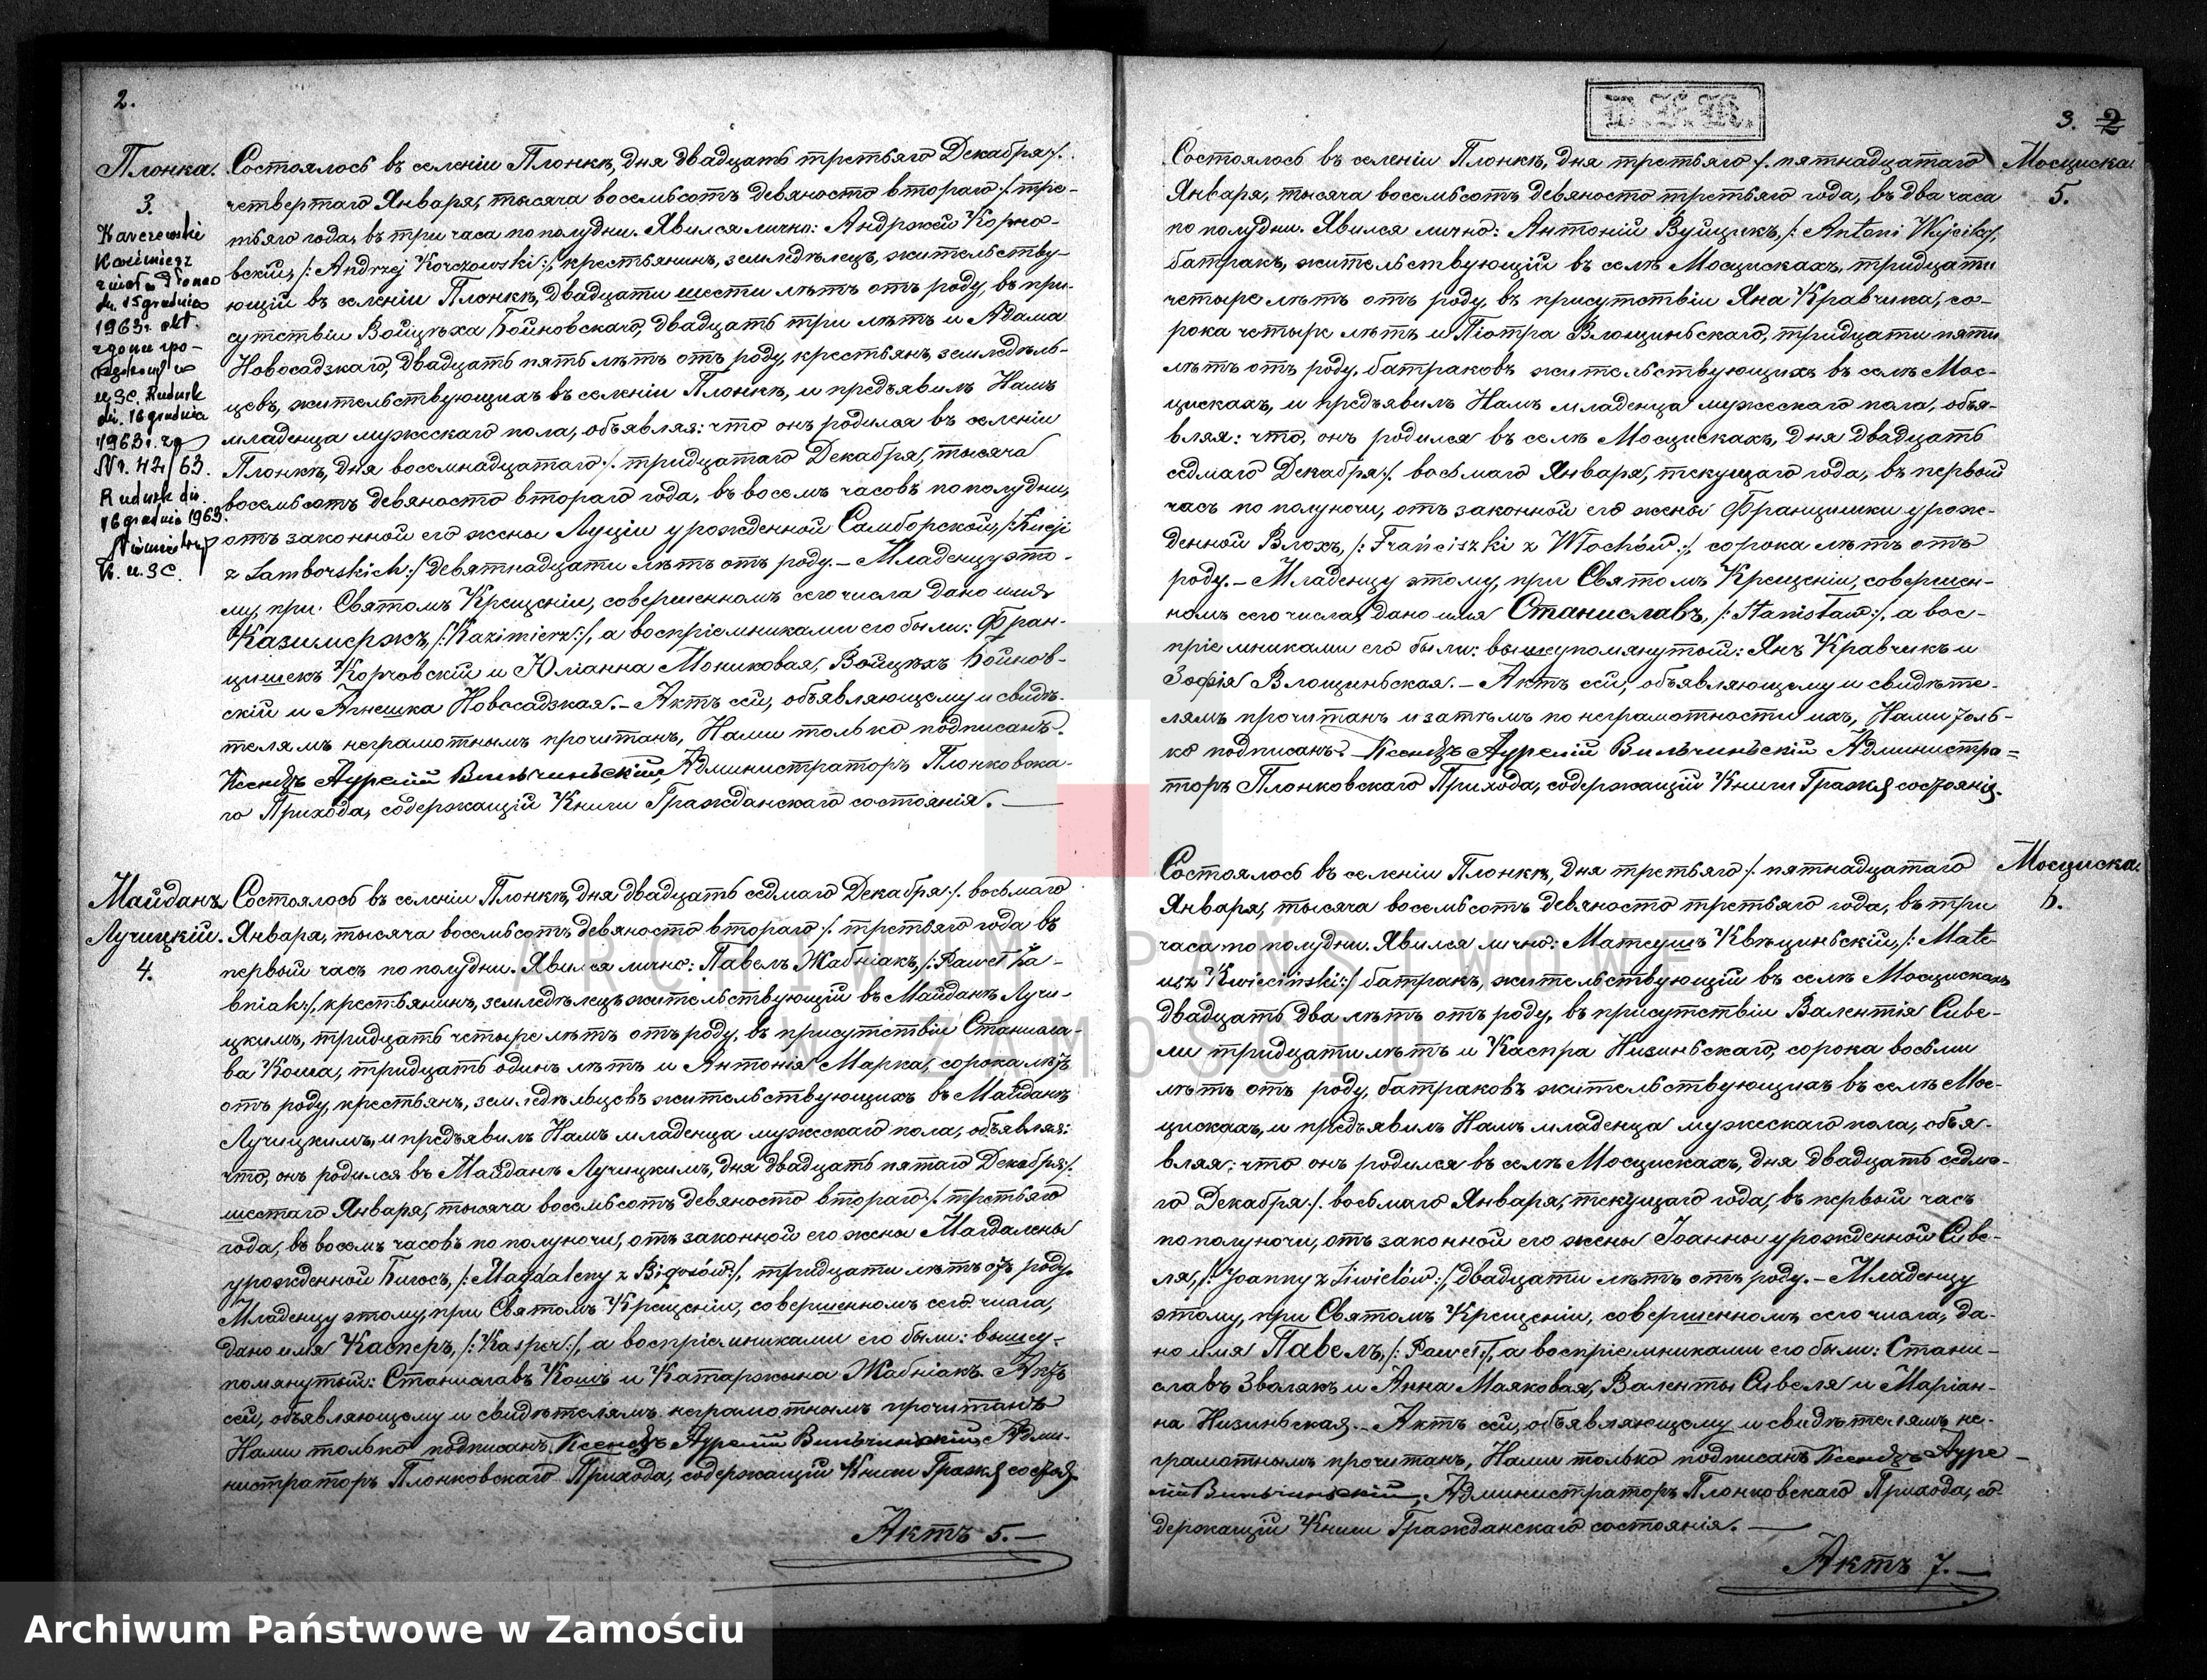 2.
Плонка.
3.
Karczewski
Kazimierz
zmarł w Płonce
dn. 15 grudnia
1963 r. akt.
zgonu spo-
rządzony w
U.S.C. Rudnik
dn. 16 grudnia
1963 r. za
Nr. 42/63.
Rudnik dn.
16 grudnia 1963.
K. U.S.C.
Состоялось въ селеніи Плонкѣ, дня двадцать третьяго Декабря /.
четвертаго Января, тысяча восемьсотъ девяносто втораго /. тре-
тьяго года, въ три часа по полудни. Явился лично: Андржей Корчо-
вскій, /: Andrzej Korczowski :/, крестьянинъ, земледѣлецъ, жительству-
ющій въ селеніи Плонкѣ, двадцати шести лѣтъ отъ роду, въ при-
сутствіи Войцѣха Бойновскаго, двадцать три лѣтъ и Адама
Новосадзкаго, двадцать пять лѣтъ отъ роду, крестьянъ, земледѣль-
цевъ, жительствующихъ въ селеніи Плонкѣ, и предъявилъ Намъ
младенца мужескаго пола, объявляя: что онъ родился въ селеніи
Плонкѣ, дня восемнадцатаго /. тридцатаго Декабря, тысяча
восемьсотъ девяносто втораго года, въ восемь часовъ по полудни,
отъ законной его жены Луціи урожденной Самборской, /: Łucji
z Samborskich :/ девятнадцати лѣтъ отъ роду. – Младенцу это-
му, при Святомъ Крещеніи, совершенномъ сего числа дано имя
Казимержъ, /: Kazimierz :/, а воспріемниками его были: Фран-
цишекъ Корчовскій и Юліанна Мониковая, Войцѣхъ Бойнов-
скій и Агнешка Новосадзкая. – Актъ сей, объявляющему и свидѣ-
телямъ неграмотнымъ прочитанъ, Нами только подписанъ.
Ксендзъ Аурелій Вильчиньскій, Администраторъ Плонковска-
го Прихода, содержащій Книги Гражданскаго состоянія. —
Майданъ
Лучицкій.
4.
Состоялось въ селеніи Плонкѣ, дня двадцать седмаго Декабря /. восьмаго
Января, тысяча восемьсотъ девяносто втораго /. третьяго года въ
первый часъ по полудни. Явился лично: Павелъ Жабніакъ, /: Paweł Ża-
bniak :/, крестьянинъ, земледѣлецъ жительствующій въ Майданѣ Лучи-
цкимъ, тридцать четыре лѣтъ отъ роду, въ присутствіи Станисла-
ва Коша, тридцать одинъ лѣтъ и Антонія Марка, сорока лѣтъ
отъ роду, крестьянъ, земледѣльцевъ жительствующихъ въ Майданѣ
Лучицкимъ, и предъявилъ Намъ младенца мужескаго пола, объявляя:
что, онъ родился въ Майданѣ Лучицкимъ, дня двадцать пятаго Декабря /.
шестаго Января, тысяча восемьсотъ девяносто втораго /. третьяго
года, въ восемь часовъ по полуночи, отъ законной его жены Магдалены
урожденной Бигосъ, /: Magdaleny z Bigosów :/, тридцати лѣтъ отъ роду.
Младенцу этому, при Святомъ Крещеніи, совершенномъ сего числа,
дано имя Касперъ, /: Kasper :/, а воспріемниками его были: вышеу-
помянутый: Станиславъ Кошъ и Катаржына Жабніакъ. Актъ
сей, объявляющему и свидѣтелямъ неграмотнымъ прочитанъ
Нами только подписанъ. Ксендзъ Аурелій Вильчиньскій, Адми-
нистраторъ Плонковскаго Прихода, содержащій Книги Гражд состоя.
Актъ 5. —
3. 2
Мосциска.
5.
Состоялось въ селеніи Плонкѣ, дня третьяго /. пятнадцатаго
Января, тысяча восемьсотъ девяносто третьяго года, въ два часа
по полудни. Явился лично: Антоній Вуйцикъ, /: Antoni Wójcik :/,
батракъ, жительствующій въ селѣ Мосцискахъ, тридцати
четыре лѣтъ отъ роду, въ присутствіи Яна Кравчика, со-
рока четыре лѣтъ и Піотра Влощиньскаго, тридцати пяти
лѣтъ отъ роду, батраковъ жительствующихъ въ селѣ Мос-
цискахъ, и предъявилъ Намъ младенца мужескаго пола, объя-
вляя: что, онъ родился въ селѣ Мосцискахъ, дня двадцать
седмаго Декабря /. восьмаго Января, текущаго года, въ первый
часъ по полуночи, отъ законной его жены Францишки урож-
денной Влохъ, /: Franciszki z Włochów :/, сорока лѣтъ отъ
роду. – Младенцу этому, при Святомъ Крещеніи, совершен-
номъ сего числа, дано имя Станиславъ, /: Stanisław :/, а вос-
пріемниками его были: вышеупомянутый: Янъ Кравчикъ и
Зофія Влощиньская. – Актъ сей, объявляющему и свидѣте-
лямъ прочитанъ и затѣмъ по неграмотности ихъ, Нами толь-
ко подписанъ. Ксендзъ Аурелій Вильчиньскій Администра-
торъ Плонковскаго Прихода, содержащій Книги Гражд состоянія.
Мосциска.
6.
Состоялось въ селеніи Плонкѣ, дня третьяго /. пятнадцатаго
Января, тысяча восемьсотъ девяносто третьяго года, въ три
часа по полудни. Явился лично: Матеушъ Квѣциньскій, /: Mate-
usz Kwieciński :/ батракъ, жительствующій въ селѣ Мосцискахъ
двадцать два лѣтъ отъ роду, въ присутствіи Валентія Сиве-
ли тридцати лѣтъ и Каспра Низиньскаго, сорока восьми
лѣтъ отъ роду, батраковъ жительствующихъ въ селѣ Мос-
цискахъ, и предъявилъ Намъ младенца мужескаго пола, объя-
вляя: что онъ родился въ селѣ Мосцискахъ, дня двадцать седма-
го Декабря /. восьмаго Января, текущаго года, въ первый часъ
по полуночи, отъ законной его жены Іоанны урожденной Сиве-
ля, /: Joanny z Siwielów :/, двадцати лѣтъ отъ роду. – Младенцу
этому, при Святомъ Крещеніи, совершенномъ сего числа, да-
но имя Павелъ, /: Paweł :/, а воспріемниками его были: Стани-
славъ Зволакъ и Анна Маяковая, Валенты Сивеля и Маріан-
на Низиньская. – Актъ сей, объявляющему и свидѣтелямъ не-
грамотнымъ прочитанъ, Нами только подписанъ Ксендзъ Ауре-
лій Вильчиньскій, Администраторъ Плонковскаго Прихода, со-
держащій Книги Гражданскаго состоянія. —
Актъ 7. —
ARCHIWUM PAŃSTWOWE
W ZAMOŚCIU
Archiwum Państwowe w Zamościu